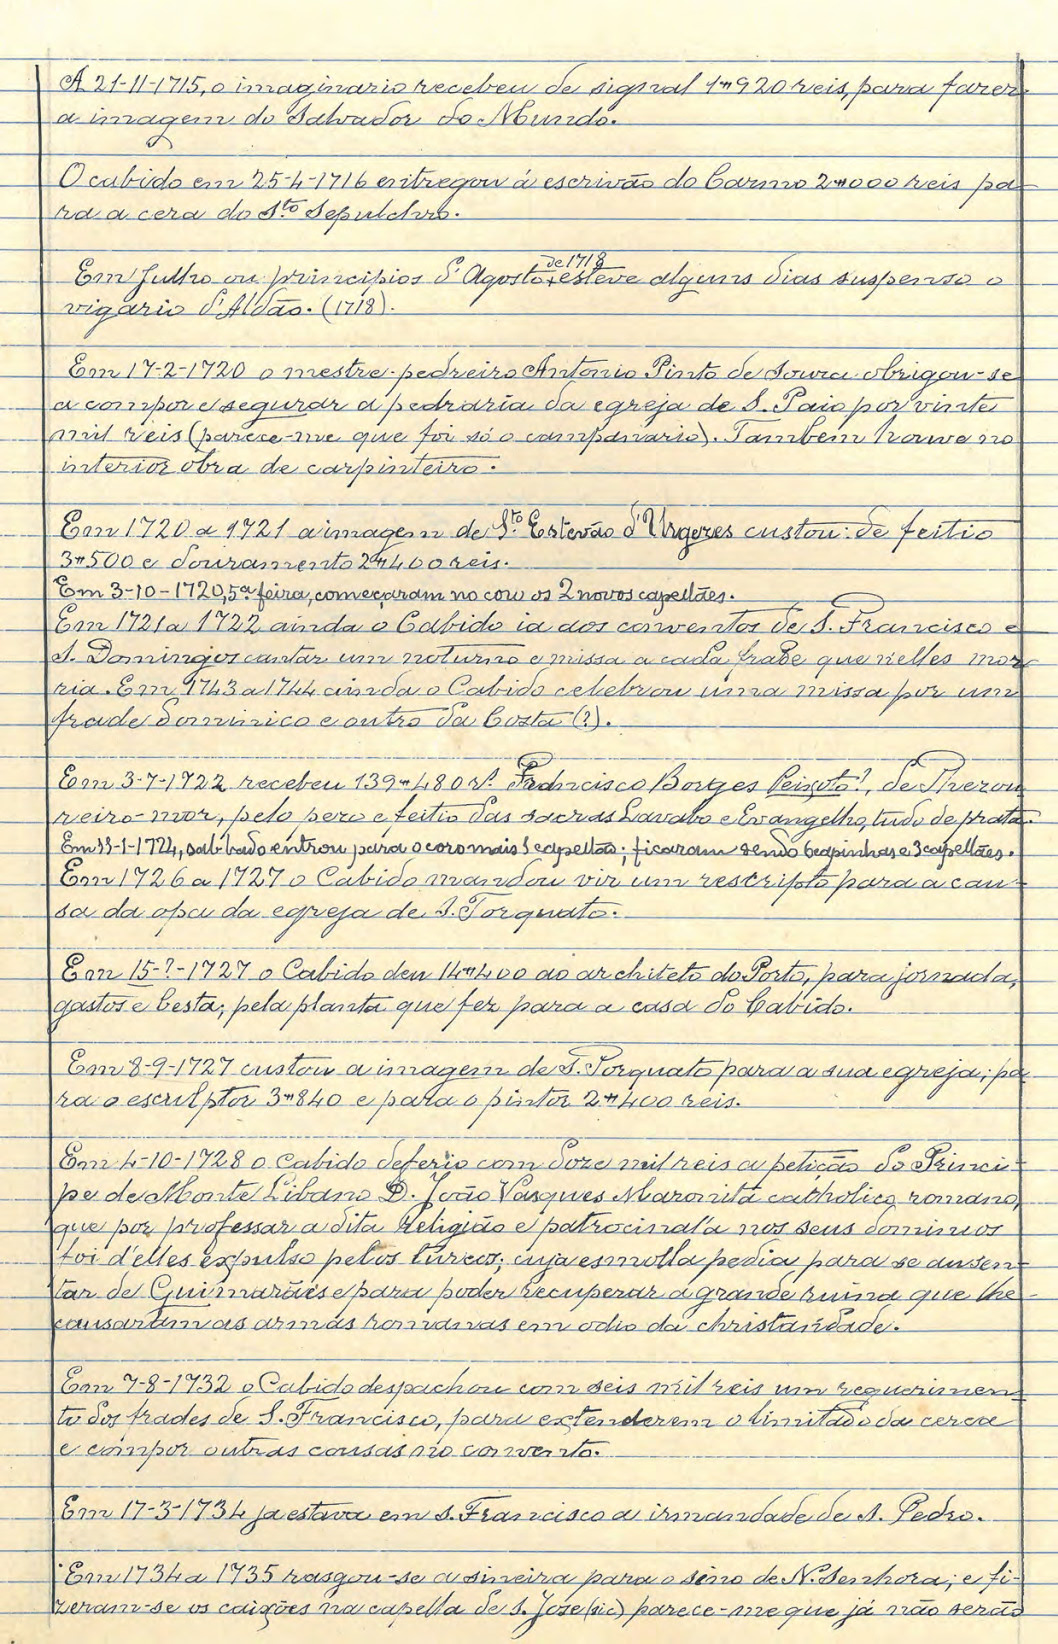 A 21-11-1715, o imaginario recebeu de signal 1$920 reis, para fazer
a imagem do Salvador do Mundo.
O cabido em 25-4-1716 entregou á escrivão do Carmo 2$000 reis pa-
ra a cera do Sto Sepulchro.
de 1718
Em Julho ou principios d'Agosto + esteve alguns dias suspenso o
vigario d'Aldão. (1718).
Em 17-2-1720 o mestre-pedreiro Antonio Pinto de Sousa obrigou-se
a compor e segurar a pedraria da egreja de S. Paio por vinte
mil reis (parece-me que foi só o campanario). Tambem houve no
interior obra de carpinteiro.
Em 1720 a 1721 a imagem de Sto Estevão d'Urgezes custou: de feitio
3$500 e douramento 2$400 reis.
Em 3-10-1720, 5ª feira, começaram no coro os 2 novos capellães.
Em 1721 a 1722 ainda o Cabido ia aos conventos de S. Francisco e
S. Domingos cantar um noturno e missa a cada frade que n'elles mor-
ria. Em 1743 a 1744 ainda o Cabido celebrou uma missa por um
frade dominico e outro da Costa (?).
Em 3-7-1722 recebeu 139$480 rs. Francisco Borges Peixoto?, de Thezou-
reiro-mor, pelo pezo e feitio das sacras Lavabo e Evangelho, tudo de prata.
1-1724, sabbado entrou para o coro mais 1 capellão; ficaram sendo 6 capinhas e 3 capellães.
Em 1726 a 1727 o Cabido mandou vir um rescripto para a cau-
sa da opa da egreja de S. Torquato.
Em 15-?-1727 o Cabido deu 14$400 ao architeto do Porto, para jornada,
gastos e besta, pela planta que fez para a casa do Cabido.
Em 8-9-1727 custou a imagem de S. Torquato para a sua egreja; pa-
ra o esculptor 3$840 e para o pintor 2$400 reis.
Em 4-10-1728 o Cabido deferio com doze mil reis a petição do Princi-
pe de Monte Libano D. João Vasques Maronita catholico romano,
que por professar a dita religião e patrocinal'a nos seus dominios
foi d'elles expulso pelos turcos; cuja esmolla pedia para se ausen-
tar de Guimarães e para poder recuperar a grande ruina que lhe
causaram as armas romanas em odio da christandade.
Em 7-8-1732 o Cabido despachou com seis mil reis um requerimen-
to dos frades de S. Francisco, para extenderem o limitado da cerca
e compor outras cousas no convento.
Em 17-3-1734 ja estava em S. Francisco a irmandade de S. Pedro.
Em 1734 a 1735 rasgou-se a sineira para o sino de N. Senhora; e fi-
zeram-se os caixões na capella de S. José (sic) parece-me que já não serão